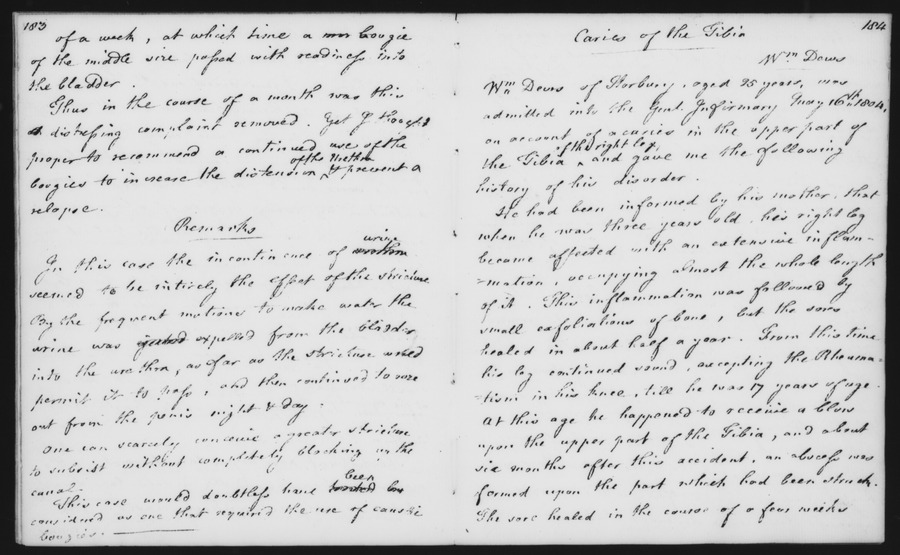 183
of a week, at which time a bougie
of the middle size passed with readiness into
the bladder.
Thus in the course of a month was this
distressing complaint removed. Yet I thought
proper to recommend a continued use of the
of the Urethra
bougies to increase the distension & prevent a
relapse.
Remarks
urine
In this case the incontinence of urethra
seemed to be intirely the effect of the stricture
By the frequent motions to make water the
urine was expelled from the bladder
into the urethra, as far as the stricture would
permit it to pass, and then continued to ooze
out from the penis night & day.
One can scarcely conceive a greater stricture
to subsist without completely blocking up the
canal.
been
This case would doubtless have
considered as one that required the use of caustic
bougies.
184
Caries of the Tibia
Wm Dews
Wm Dews of Horbury, aged 25 years, was
admitted into the Genl. Infirmary May 16th 1804,
on account of a caries in the upper part of
of the right leg,
the Tibia ^ and gave me the following
history of his disorder.
He had been informed by his mother, that
when he was three years old his right leg
became affected with an extensive inflam-
=mation, occupying almost the whole length
of it. This inflammation was followed by
small exfoliations of bone, but the sores
healed in about half a year. From this time
his leg continued sound, excepting the Rheuma-
=tism in his knee, till he was 17 years of age.
At this age he happened to receive a blow
upon the upper part of the Tibia, and about
six months after this accident, an abscess was
formed upon the part which had been struck.
The sore healed in the course of a few weeks